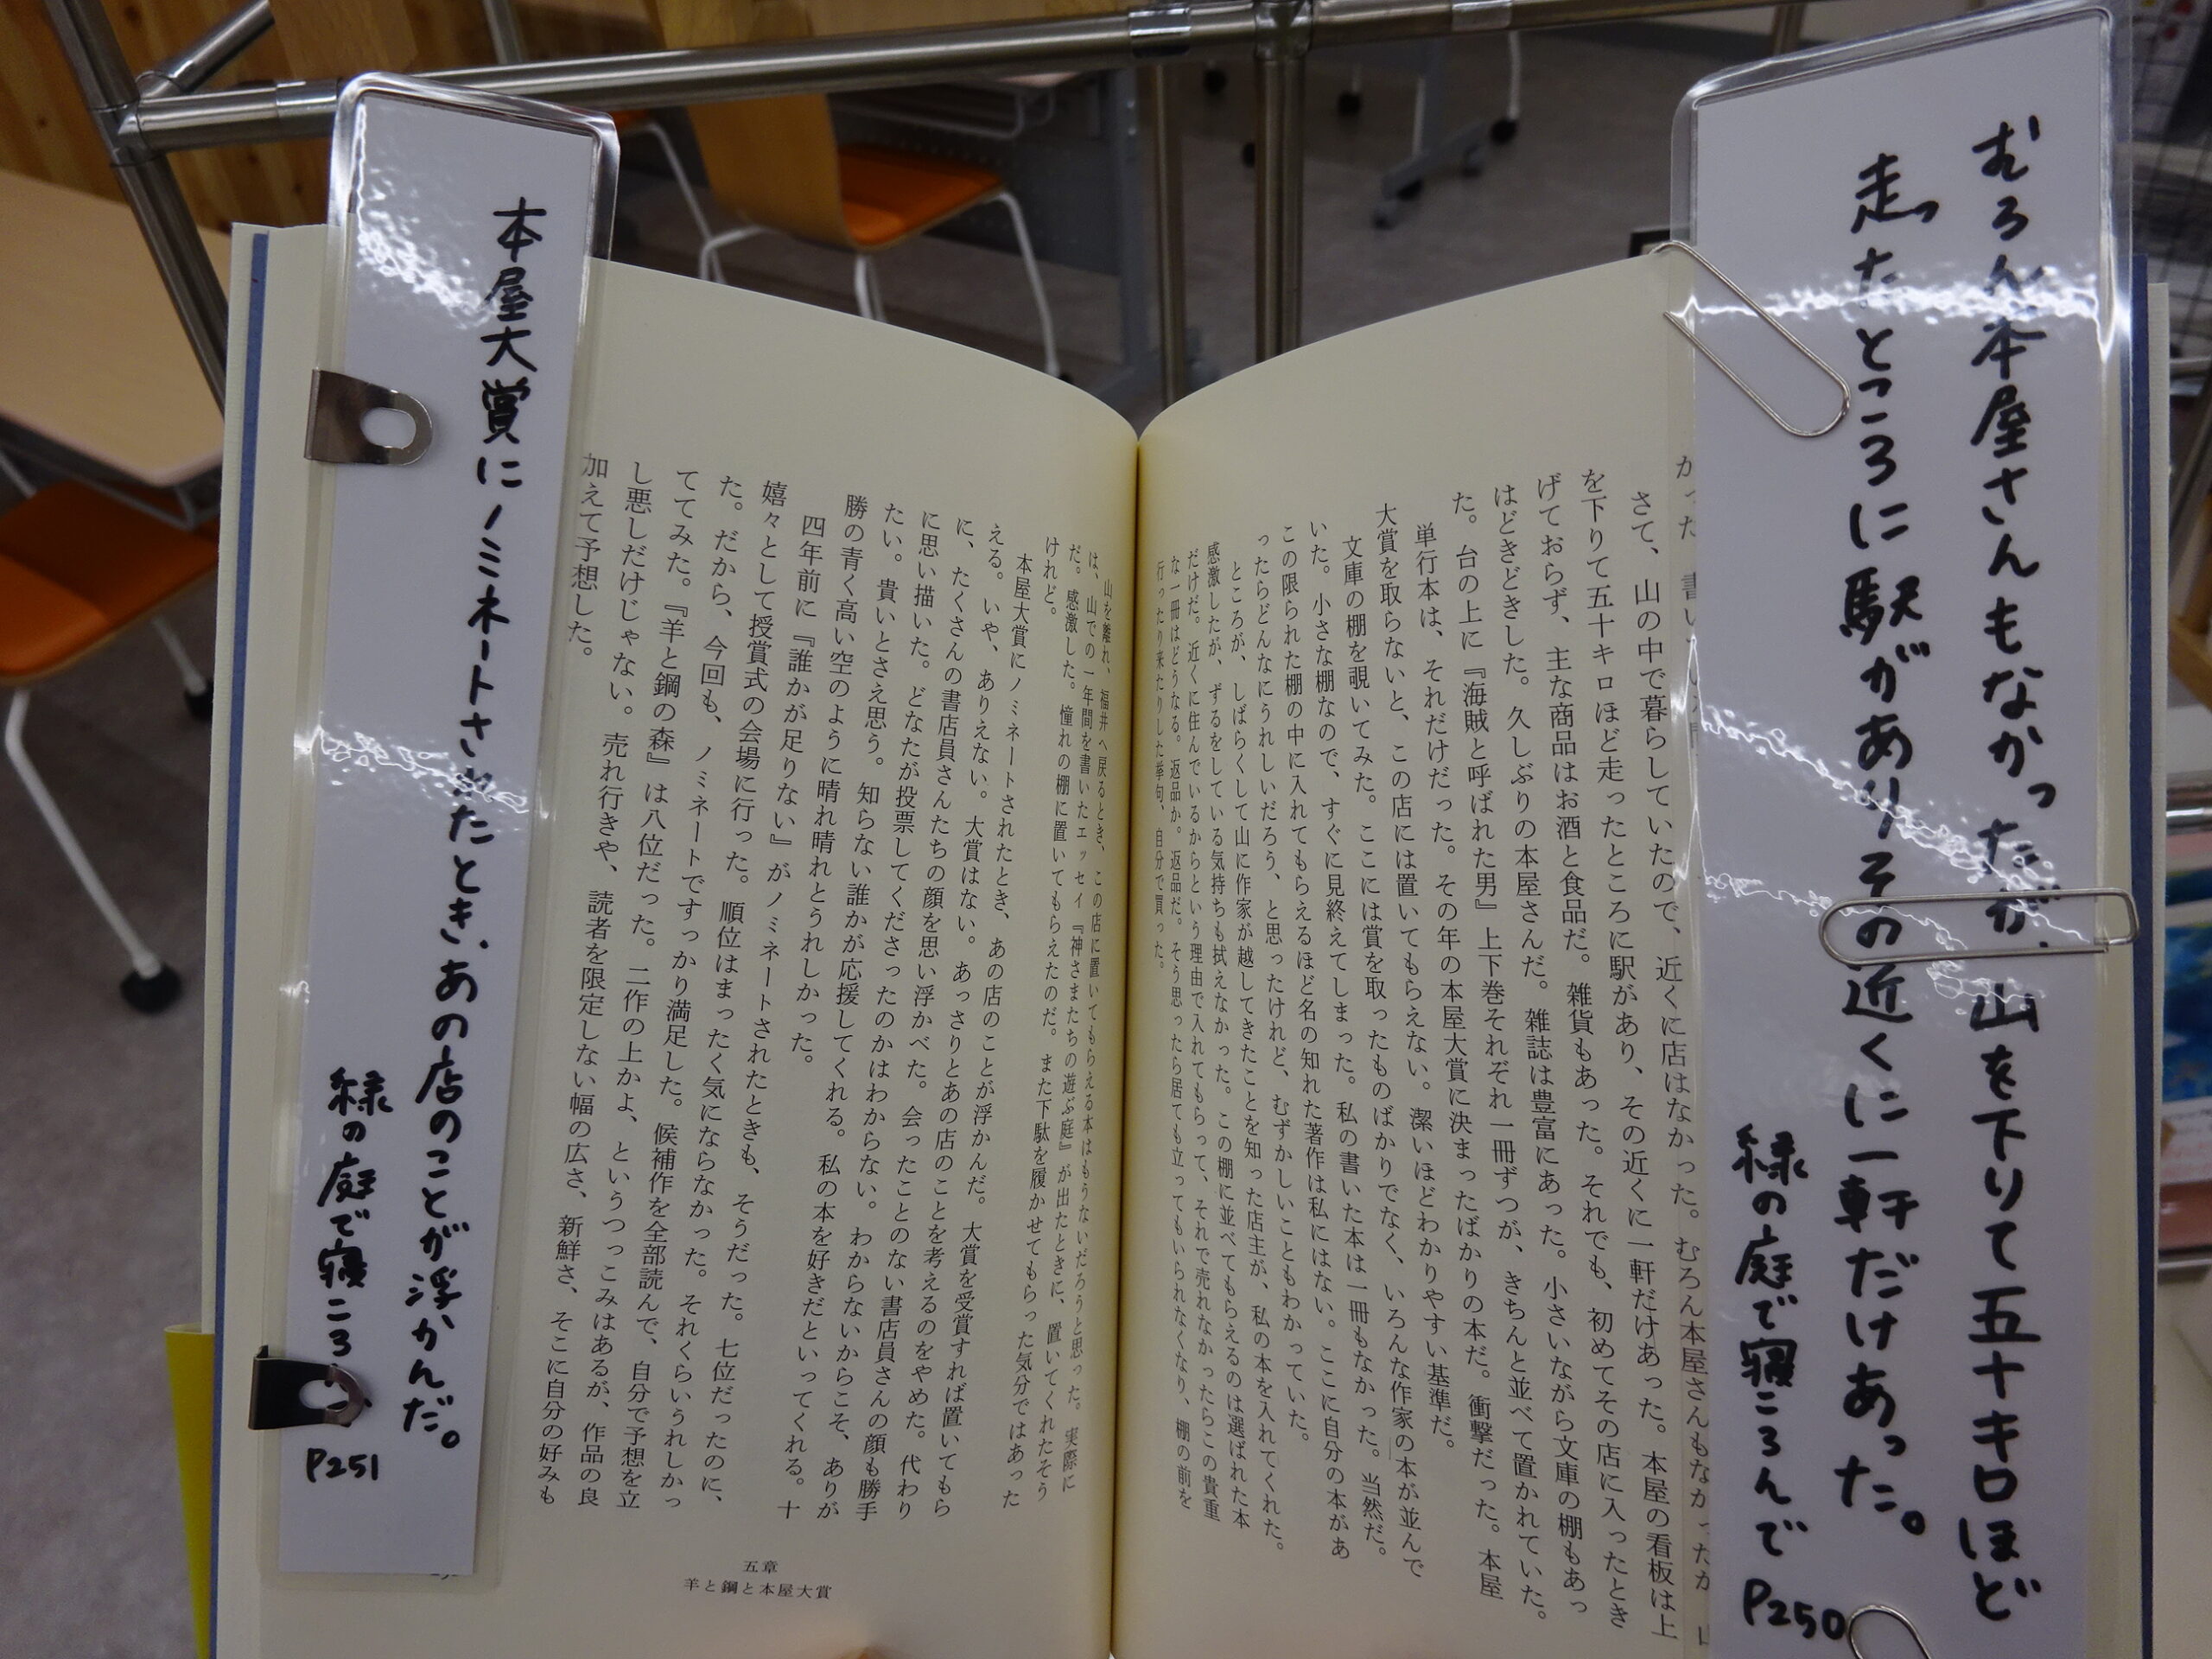 むろん本屋さんもなかったが、山を下りて五十キロほど
走ったところに駅がありその近くに一軒だけあった。
緑の庭で寝ころんで P250
さて、山の中で暮らしていたので、近くに店はなかった。むろん本屋さんもなかったが、山
を下りて五十キロほど走ったところに駅があり、その近くに一軒だけあった。本屋の看板は上
げておらず、主な商品はお酒と食品だ。雑貨もあった。それでも、初めてその店に入ったとき
はどきどきした。久しぶりの本屋さんだ。雑誌は豊富にあった。小さいながら文庫の棚もあっ
た。台の上に『海賊と呼ばれた男』上下巻それぞれ一冊ずつが、きちんと並べて置かれていた。
単行本は、それだけだった。その年の本屋大賞に決まったばかりの本だ。衝撃だった。本屋
大賞を取らないと、この店には置いてもらえない。潔いほどわかりやすい基準だ。
文庫の棚を覗いてみた。ここには賞を取ったものばかりでなく、いろんな作家の本が並んで
いた。小さな棚なので、すぐに見終えてしまった。私の書いた本は一冊もなかった。当然だ。
この限られた棚の中に入れてもらえるほど名の知れた著作は私にはない。ここに自分の本があ
ったらどんなにうれしいだろう、と思ったけれど、むずかしいこともわかっていた。
ところが、しばらくして山に作家が越してきたことを知った店主が、私の本を入れてくれた。
感激したが、ずるをしている気持ちも拭えなかった。この棚に並べてもらえるのは選ばれた本
だけだ。近くに住んでいるからという理由で入れてもらって、それで売れなかったらこの貴重
な一冊はどうなる。返品か。返品だ。そう思ったら居ても立ってもいられなくなり、棚の前を
行ったり来たりした挙句、自分で買った。
山を離れ、福井へ戻るとき、この店に置いてもらえる本はもうないだろうと思った。実際に
は、山での一年間を書いたエッセイ『神さまたちの遊ぶ庭』が出たときに、置いてくれたそう
だ。感激した。憧れの棚に置いてもらえたのだ。また下駄を履かせてもらった気分ではあった
けれど。
本屋大賞にノミネートされたとき、あの店のことが浮かんだ。大賞を受賞すれば置いてもら
える。いや、ありえない。大賞はない。あっさりとあの店のことを考えるのをやめた。代わり
に、たくさんの書店員さんたちの顔を思い浮かべた。会ったことのない書店員さんの顔も勝手
に思い描いた。どなたが投票してくださったのかはわからない。わからないからこそ、ありが
たい。貴いとさえ思う。知らない誰かが応援してくれる。私の本を好きだといってくれる。十
勝の青く高い空のように晴れ晴れとうれしかった。
四年前に『誰かが足りない』がノミネートされたときも、そうだった。七位だったのに、
嬉々として授賞式の会場に行った。順位はまったく気にならなかった。それくらいうれしかっ
た。だから、今回も、ノミネートですっかり満足した。候補作を全部読んで、自分で予想を立
ててみた。『羊と鋼の森』は八位だった。二作の上かよ、というつっこみはあるが、作品の良
し悪しだけじゃない。売れ行きや、読者を限定しない幅の広さ、新鮮さ、そこに自分の好みも
加えて予想した。
五章
羊と鋼と本屋大賞
本屋大賞にノミネートされたとき、あの店のことが浮かんだ。
緑の庭で寝ころんで P251